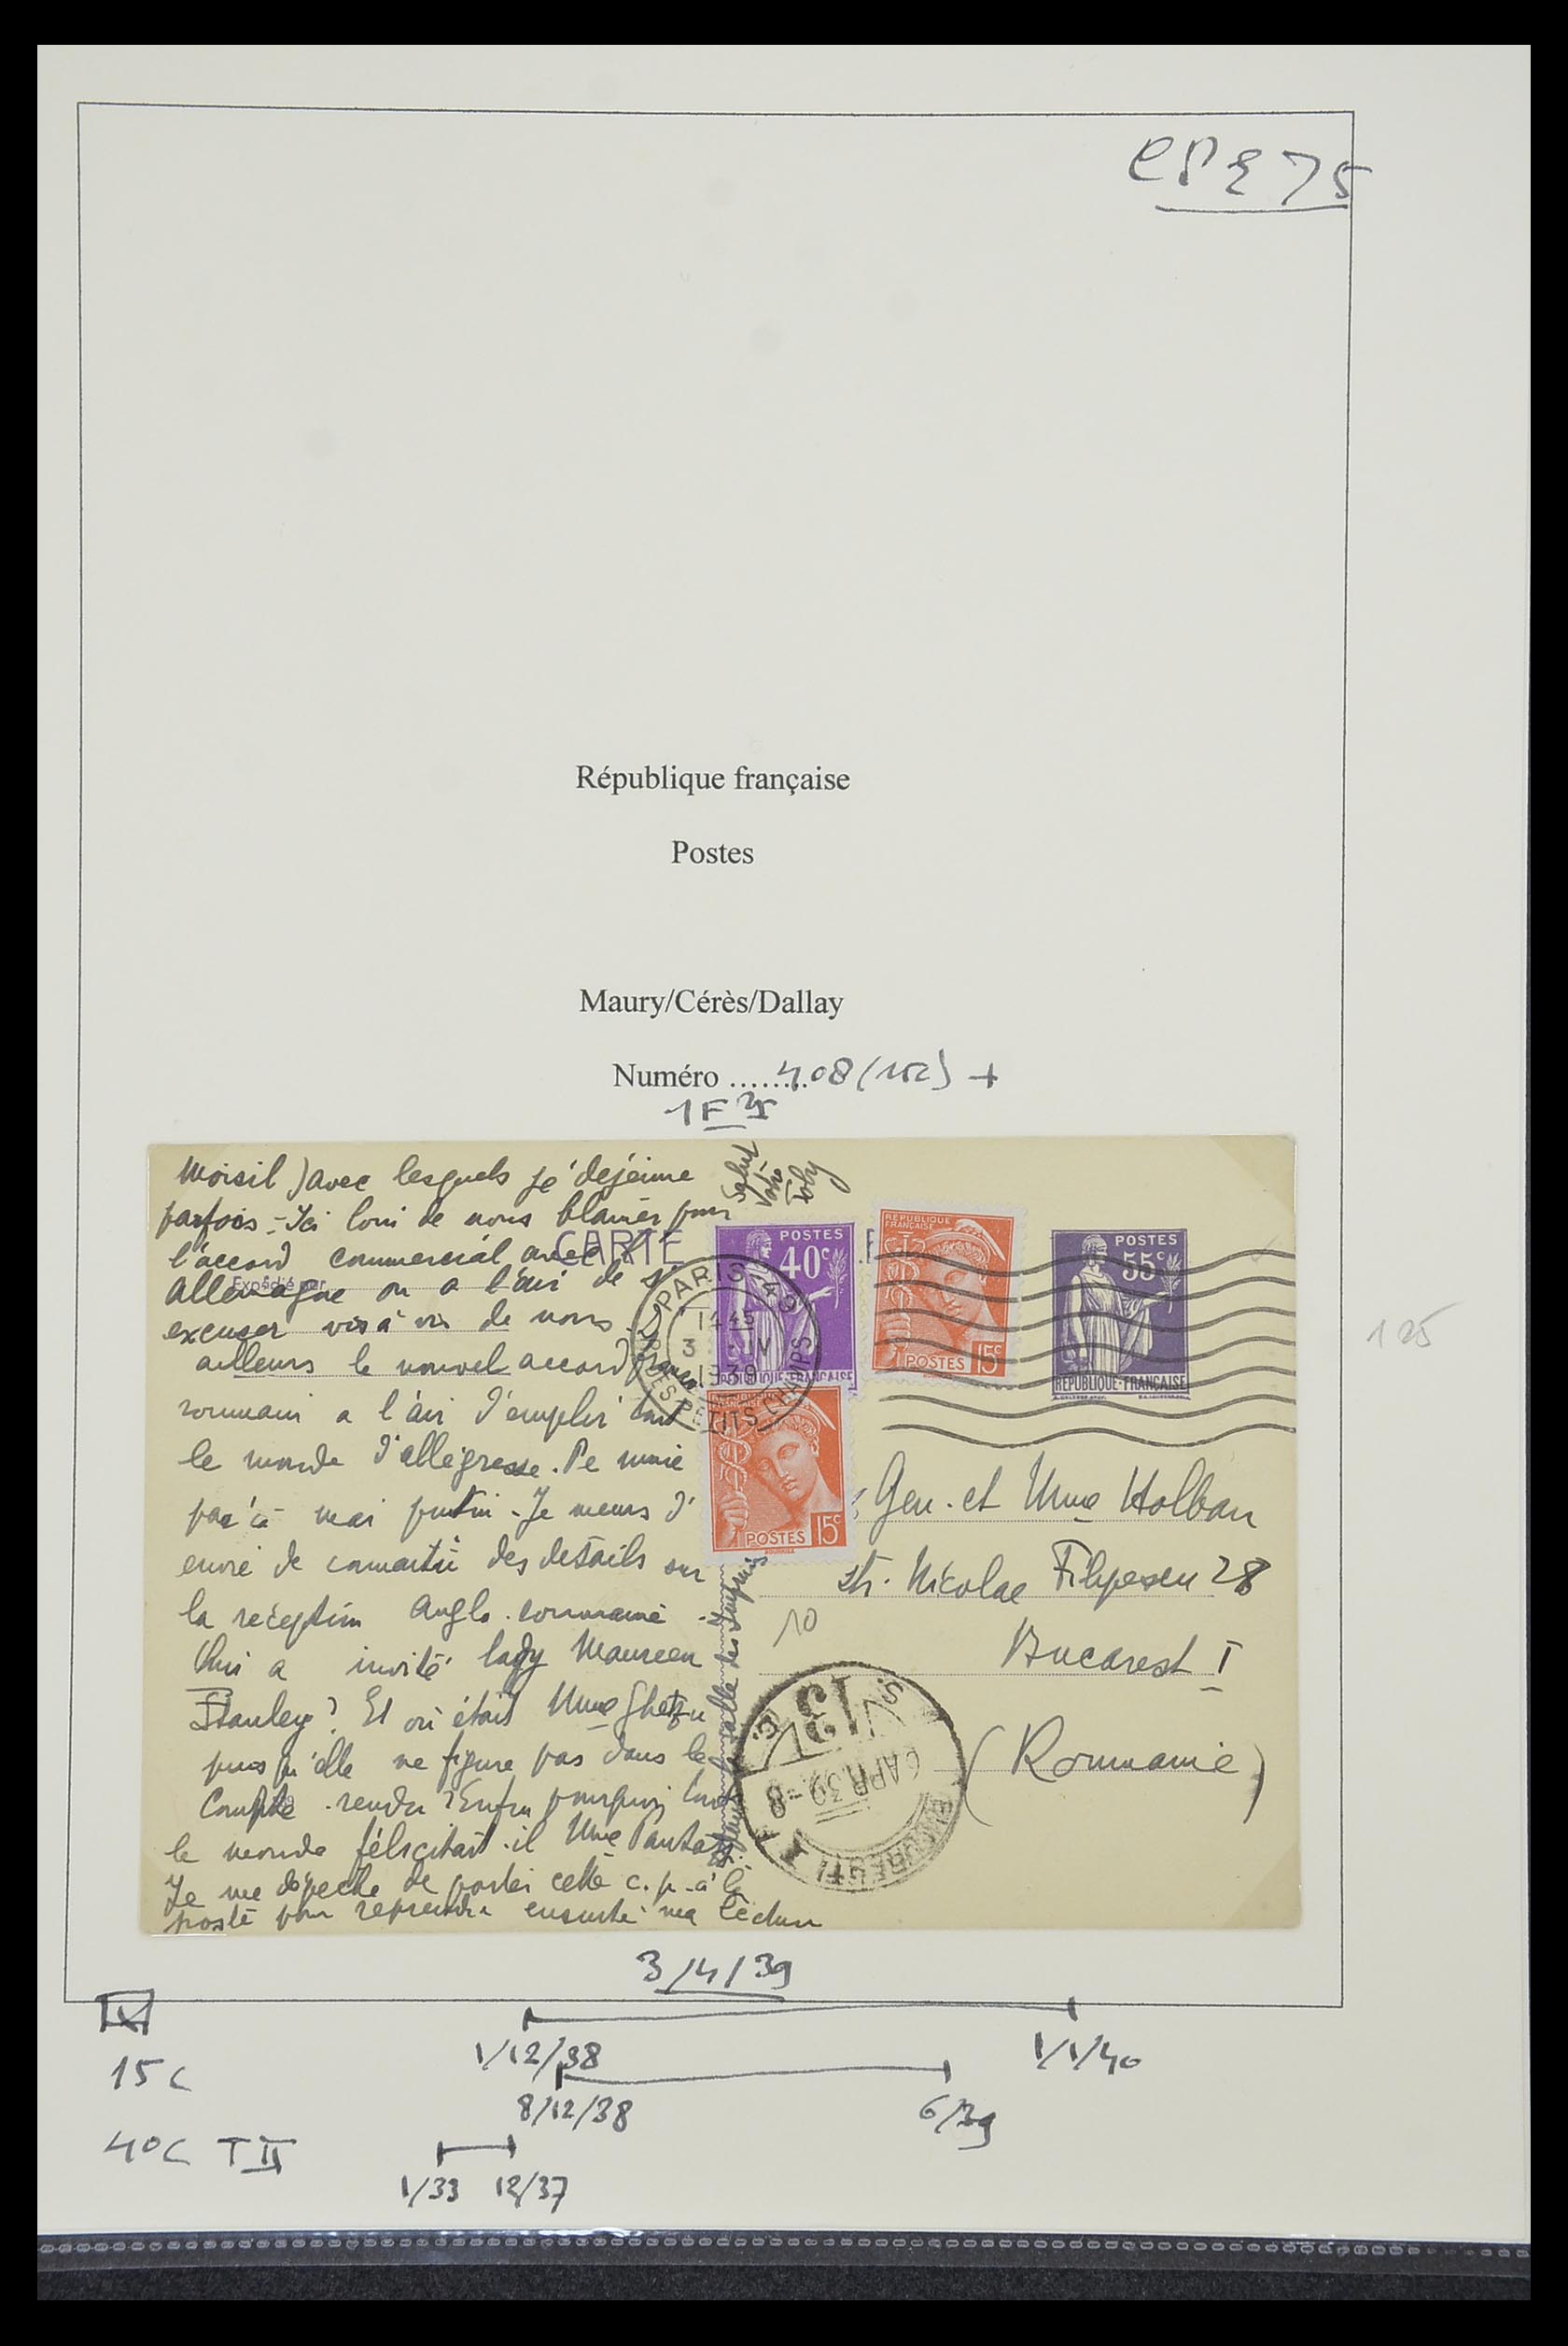 CPE 75
République française
Postes
Maury/Cérès/Dallay
Numéro ........408 (15c) +
1F25
Moisil) avec lesquels je déjeune
parfois - Ici loin de nous blâmer pour
l'accord commercial avec l'
Allemagne on a l'air de s'
excuser vis à vis de nous. D'
ailleurs le nouvel accord franco
roumain a l'air d'emplir tout
le monde d'allégresse. Pe mine
mai puțin - Je meurs d'
envie de connaître des détails sur
la réception Anglo-roumaine -
Qui a invité lady Maureen
Stanley? Et où était Mme
puisqu'elle ne figure pas dans le
Compte-rendu? Enfin pourquoi tout
le monde félicitait-il Mme
Je me dépêche de porter cette c.p. à la
poste pour reprendre ensuite ma lecture
salle des Imprimés
CARTE
Expédié par
POSTES
40c
RÉPUBLIQUE FRANÇAISE
RÉPUBLIQUE FRANÇAISE
POSTES 15c
POSTES
55c
RÉPUBLIQUE-FRANÇAISE
POSTES 15c
PARIS
1445
3 IV
1939
R. DES PETITS CHAMPS
Gen. et Mme Holban
Str. Nicolae Filipescu 28
10
Bucarest I
(Roumanie)
13
6 APR. 39 - 8
BUCUREȘTI
125
3/4/39
1/12/38 1/1/40
15c
8/12/38 6/39
40c T II
1/33 12/37